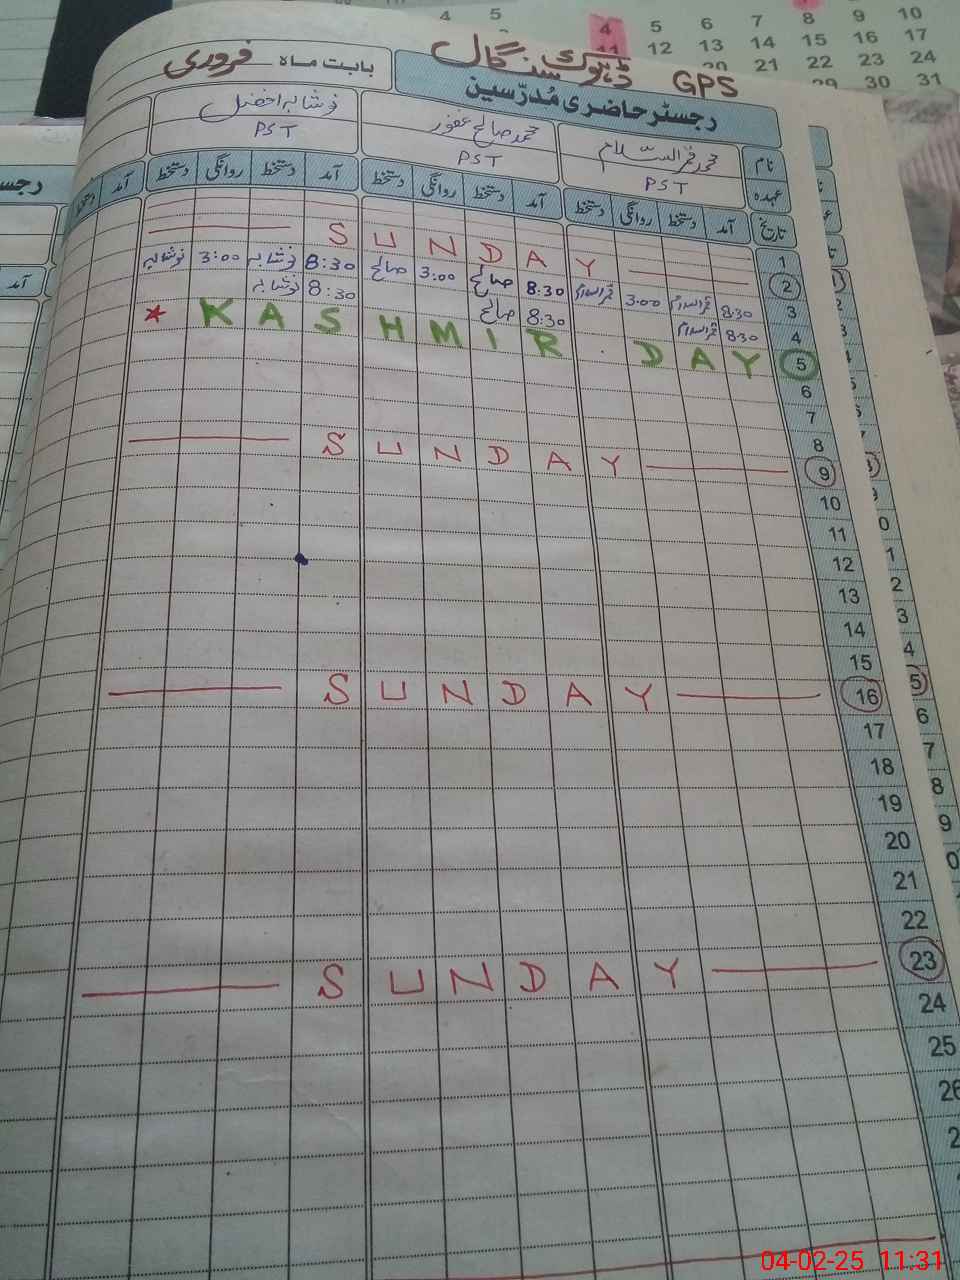 4 5 4 5 6 7 8 9 10
11 12 13 14 15 16 17
20 21 22 23 24
29 30 31
GPS ڈہوک سنگال
بابت ماہ فروری
رجسٹر حاضری مُدرّسین
نام محمد قمرالسّلام محمد صالح غفور نوشابہ افضل
عہدہ PST PST PST
تاریخ آمد دستخط روانگی دستخط آمد دستخط روانگی دستخط آمد دستخط روانگی دستخط آمد
1
2 SUNDAY
3 8:30 قمرالسلام 3:00 قمرالسلام 8:30 صالح 3:00 صالح 8:30 نوشابہ 3:00 نوشابہ
4 8:30 قمرالسلام 8:30 صالح 8:30 نوشابہ
5 * KASHMIR DAY
6
7
8
9 SUNDAY
10
11
12
13
14
15
16 SUNDAY
17
18
19
20
21
22
23 SUNDAY
24
25
26
04-02-25 11:31